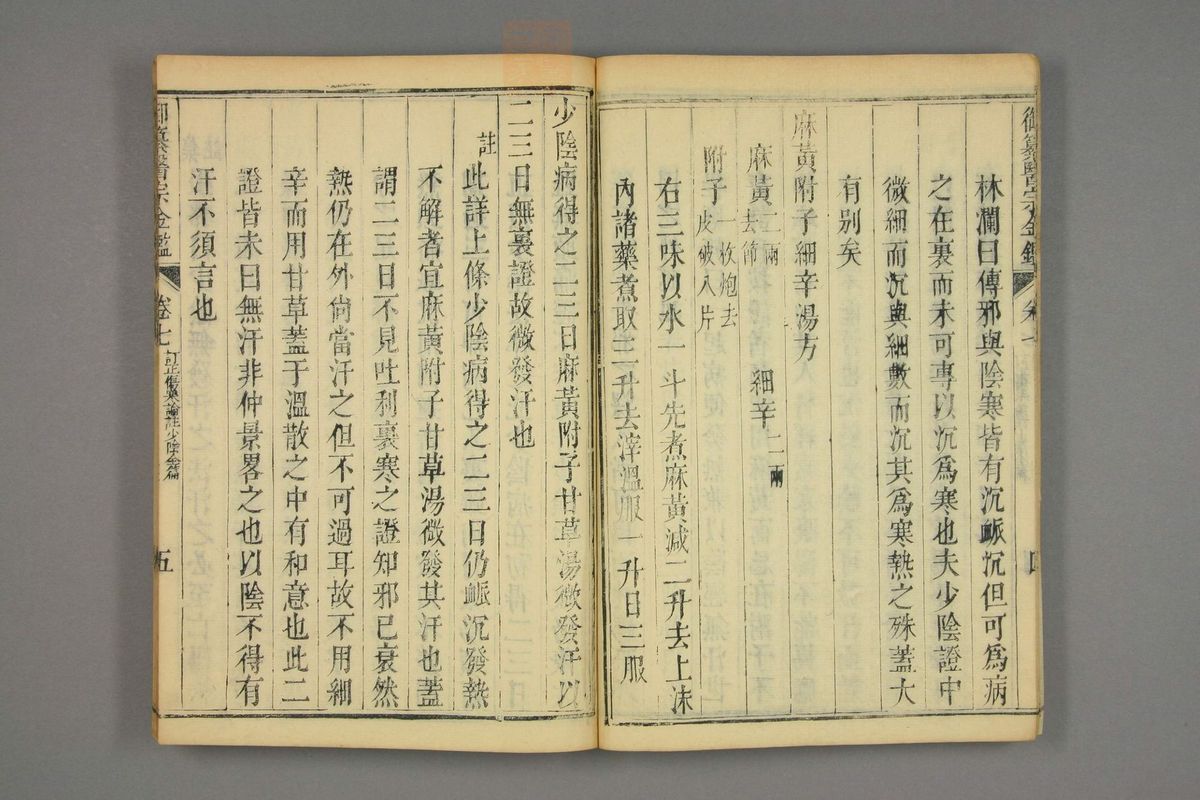 御纂醫宗金鑑
林瀾曰傳邪與陰寒皆有沉脈沉但可為病
之在裏而未可專以沉為寒也夫少陰證中
微細而沉與細數而沉其為寒熱之殊蓋大
有别矣
麻黃附子細辛湯方
麻黃二兩去節 細辛二兩
附子一枚炮去皮破八片
右三味以水一斗先煮麻黃減二升去上沫
內諸藥煮取三升去滓溫服一升日三服
少陰病得之二三日麻黃附子甘草湯微發汗以
二三日無裏證故微發汗也
註 此詳上條少陰病得之二三日仍脈沉發熱
不解者宜麻黃附子甘草湯微發其汗也蓋
謂二三日不見吐利裏寒之證知邪已衰然
熱仍在外尚當汗之但不可過耳故不用細
辛而用甘草蓋于溫散之中有和意也此二
證皆未曰無汗非仲景畧之也以陰不得有
汗不須言也
御纂醫宗金鑑 卷七 訂正傷寒論註少陰全篇 五